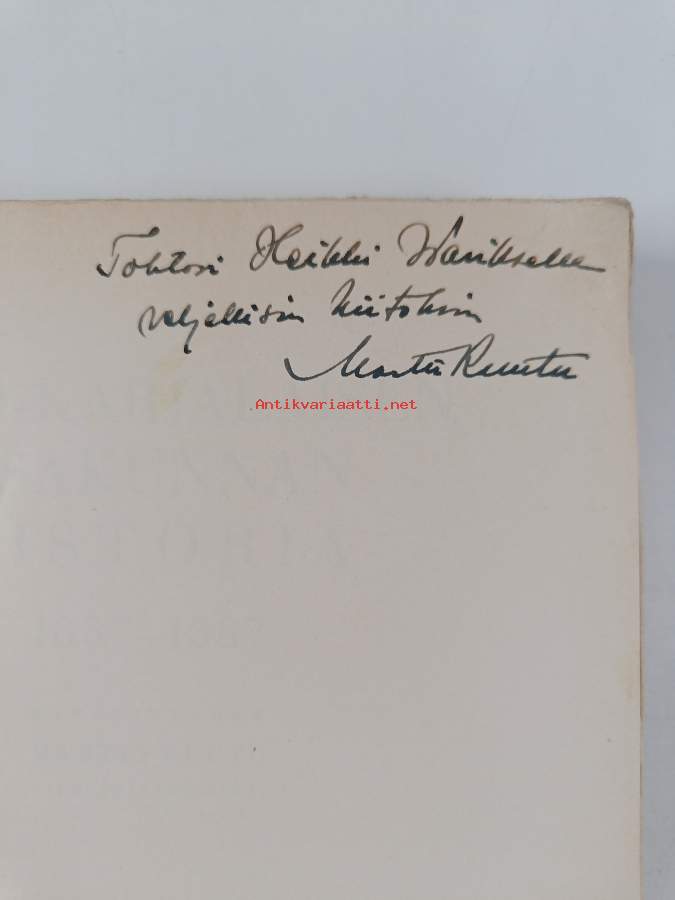 Tohtori Heikki Warikselle
veljellisin kiitoksin
Martti Ruutu
Antikvariaatti.net